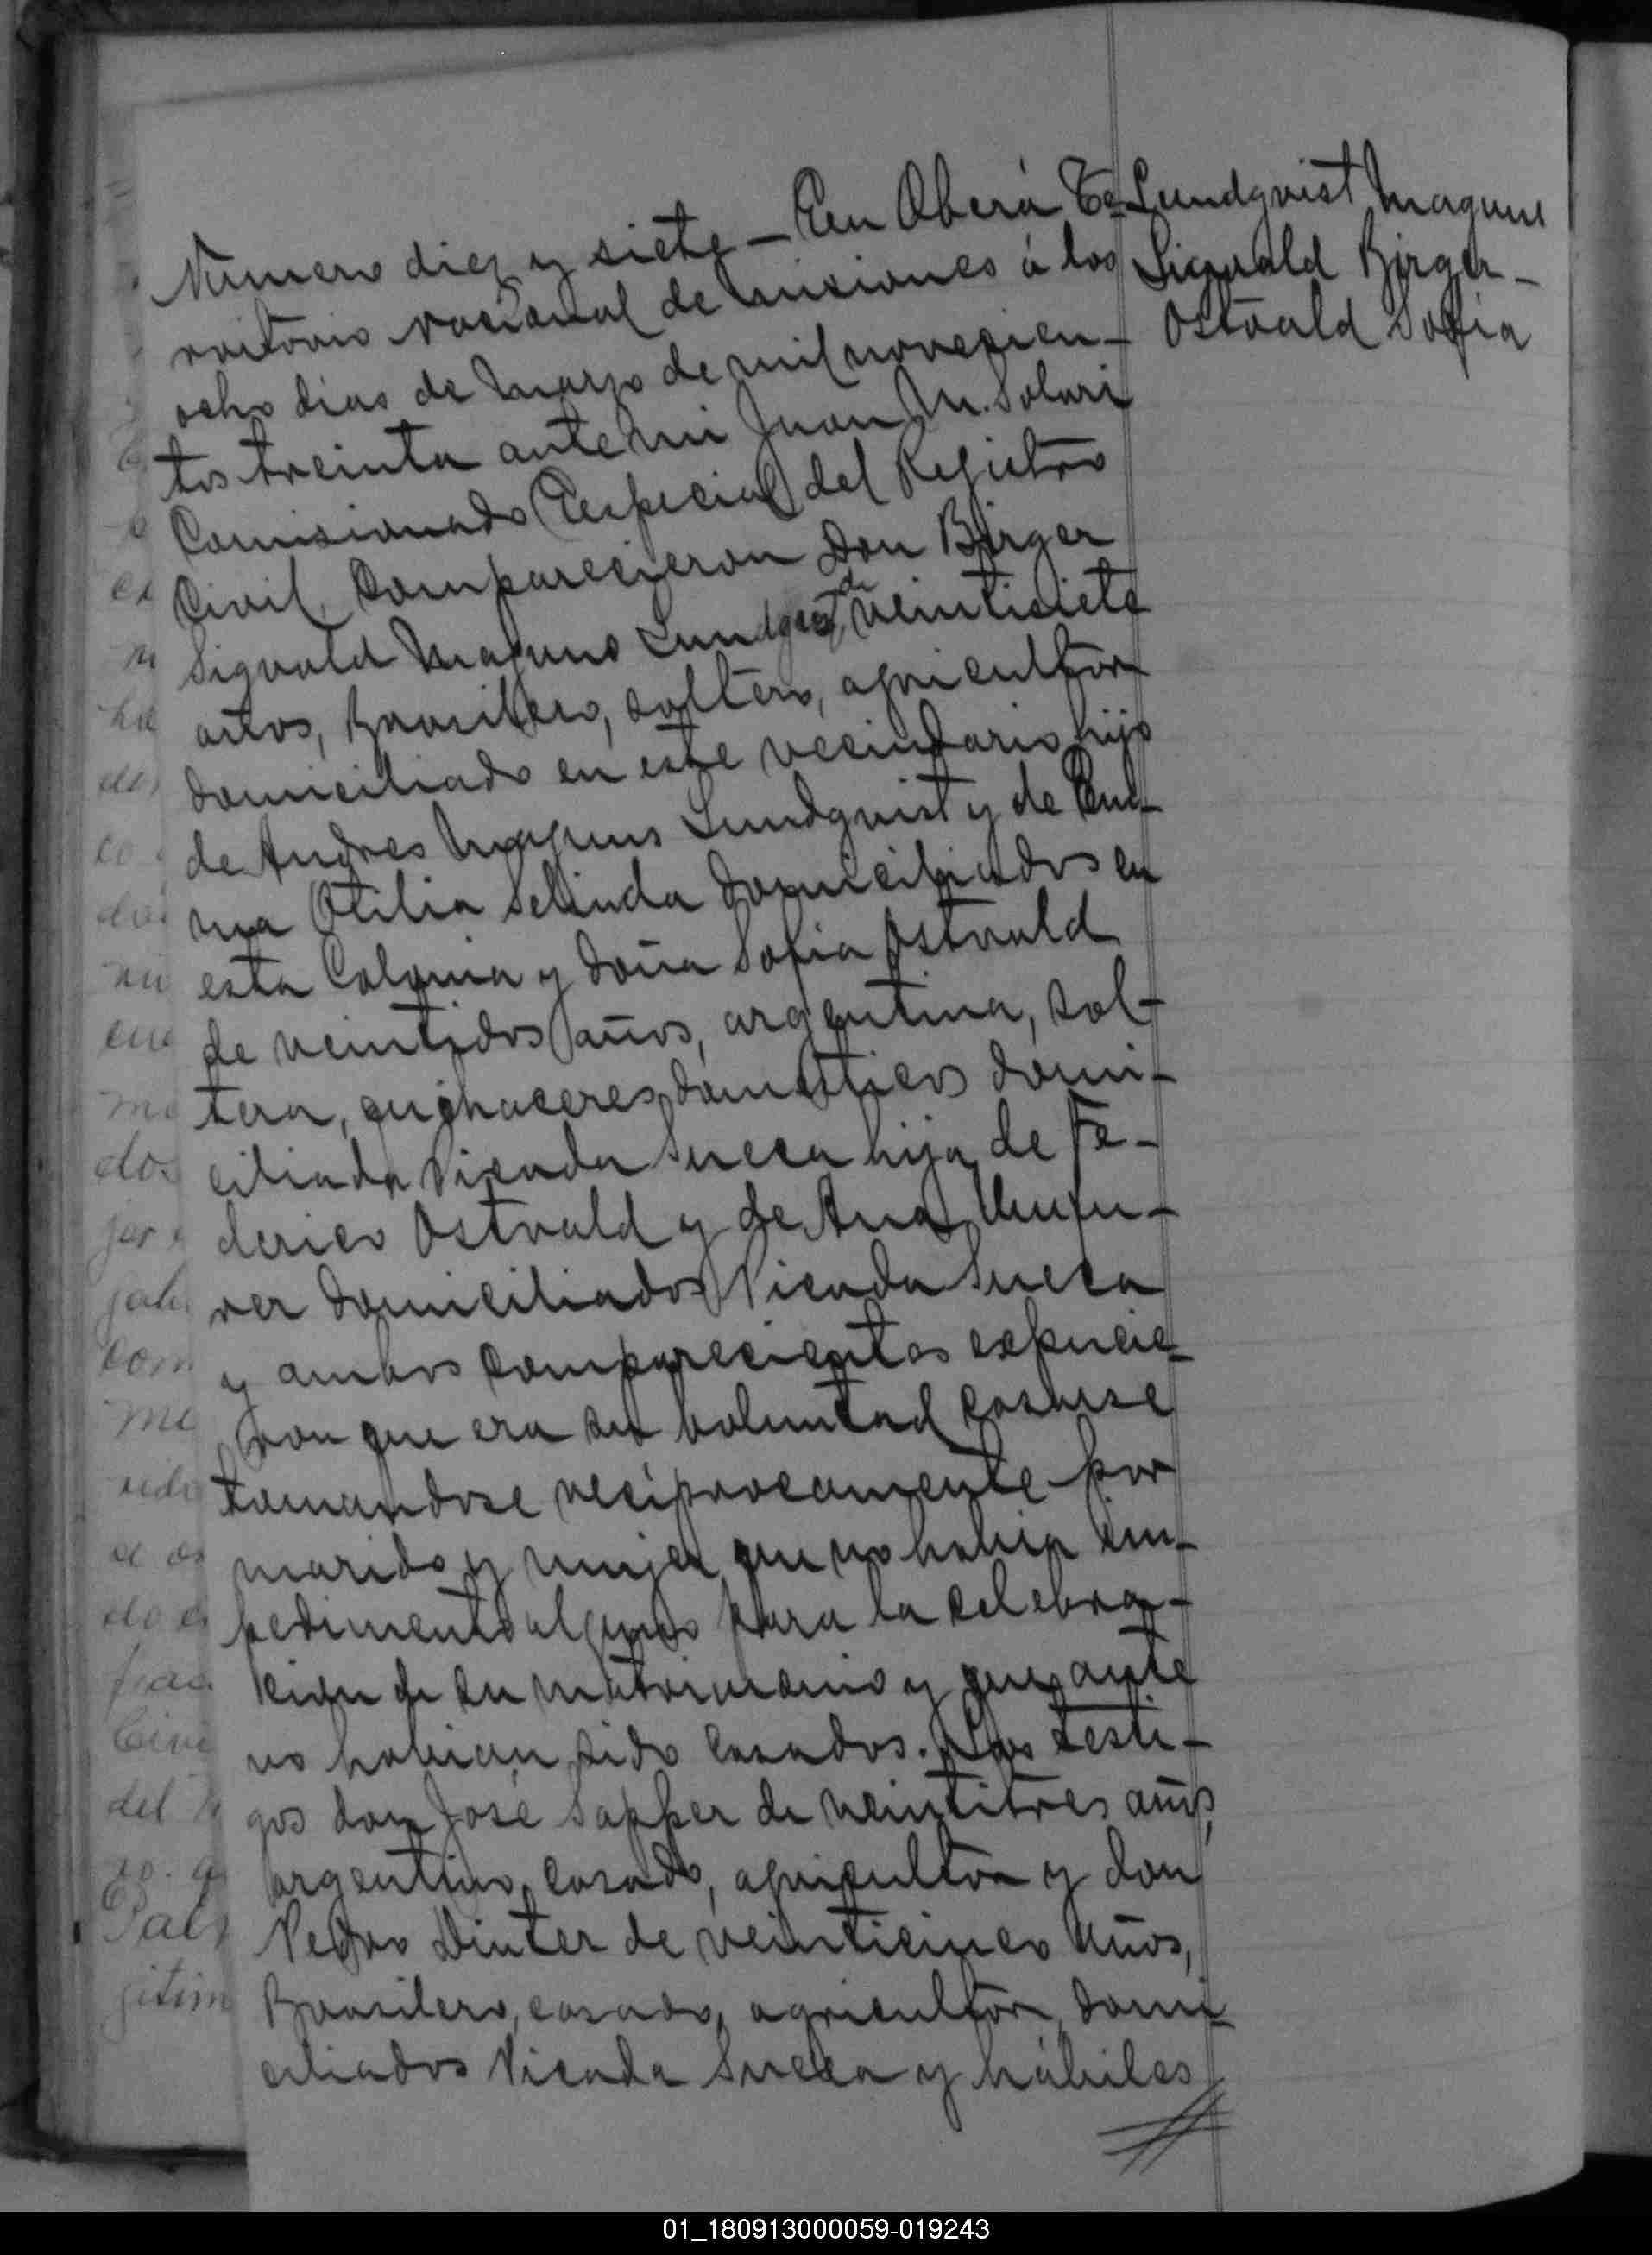 Número diez y siete — En Oberá Te-
rritorio Nacional de Misiones á los
ocho dias de Marzo de mil novecien-
tos treinta ante mi Juan M. Solari
Comisionado Especial del Registro
Civil, Comparecieron Don Birger
Sigvald Magnus Lundqvist, de veintisiete
años, Brasilero, soltero, agricultor
domiciliado en este vecindario hijo
de Andres Magnus Lundqvist y de Em-
ma Otilia Selinda domiciliados en
esta Colonia y doña Sofia Ostwald
de veintidos años, argentina, sol-
tera, quehaceres domesticos domi-
ciliada Picada Sueca hija de Fe-
derico Ostwald y de Ana
domiciliados Picada Sueca
y ambos comparecientes expucie-
ron que era su voluntad casarse
tomandose reciprocamente por
marido y mujer que no habia im-
pedimento alguno para la celebra-
cion de su matrimonio y que ante
no habian sido casados. Los testi-
gos don José Sapper de veintitres años,
argentino, casado, agricultor y don
Pedro Dinter de veinticinco años,
Brasilero, casado, agricultor, domi-
ciliados Picada Sueca y hábiles
Lundqvist Magnus
Sigvald Birger -
Ostwald Sofia
01_180913000059-019243